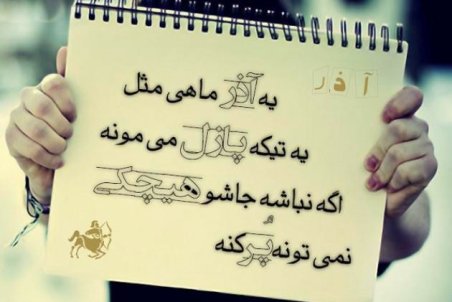 آذر
یه آذر ماهی مثل
یه تیکه پازل می مونه
اگه نباشه جاشو هیچکی
نمی تونه پُر کنه